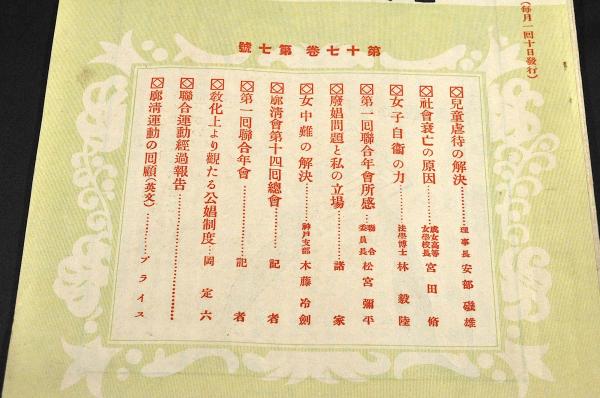 (每月一回十日發行)
第十七卷第七號
◇兒童虐待の解決……理事長 安部磯雄
◇社會衰亡の原因……成女高等女學校長 宮田脩
◇女子自衞の力……法學博士 林毅陸
◇第一回聯合年會所感……聯合委員長 松宮彌平
◇廢娼問題と私の立場……諸家
◇女中難の解決……神戸支部 木藤冷劍
◇廓淸會第十四回總會……記者
◇第一回聯合年會……記者
◇敎化上より觀たる公娼制度……岡定六
◇聯合運動經過報告……
◇廓淸運動の回顧(英文)……プライス